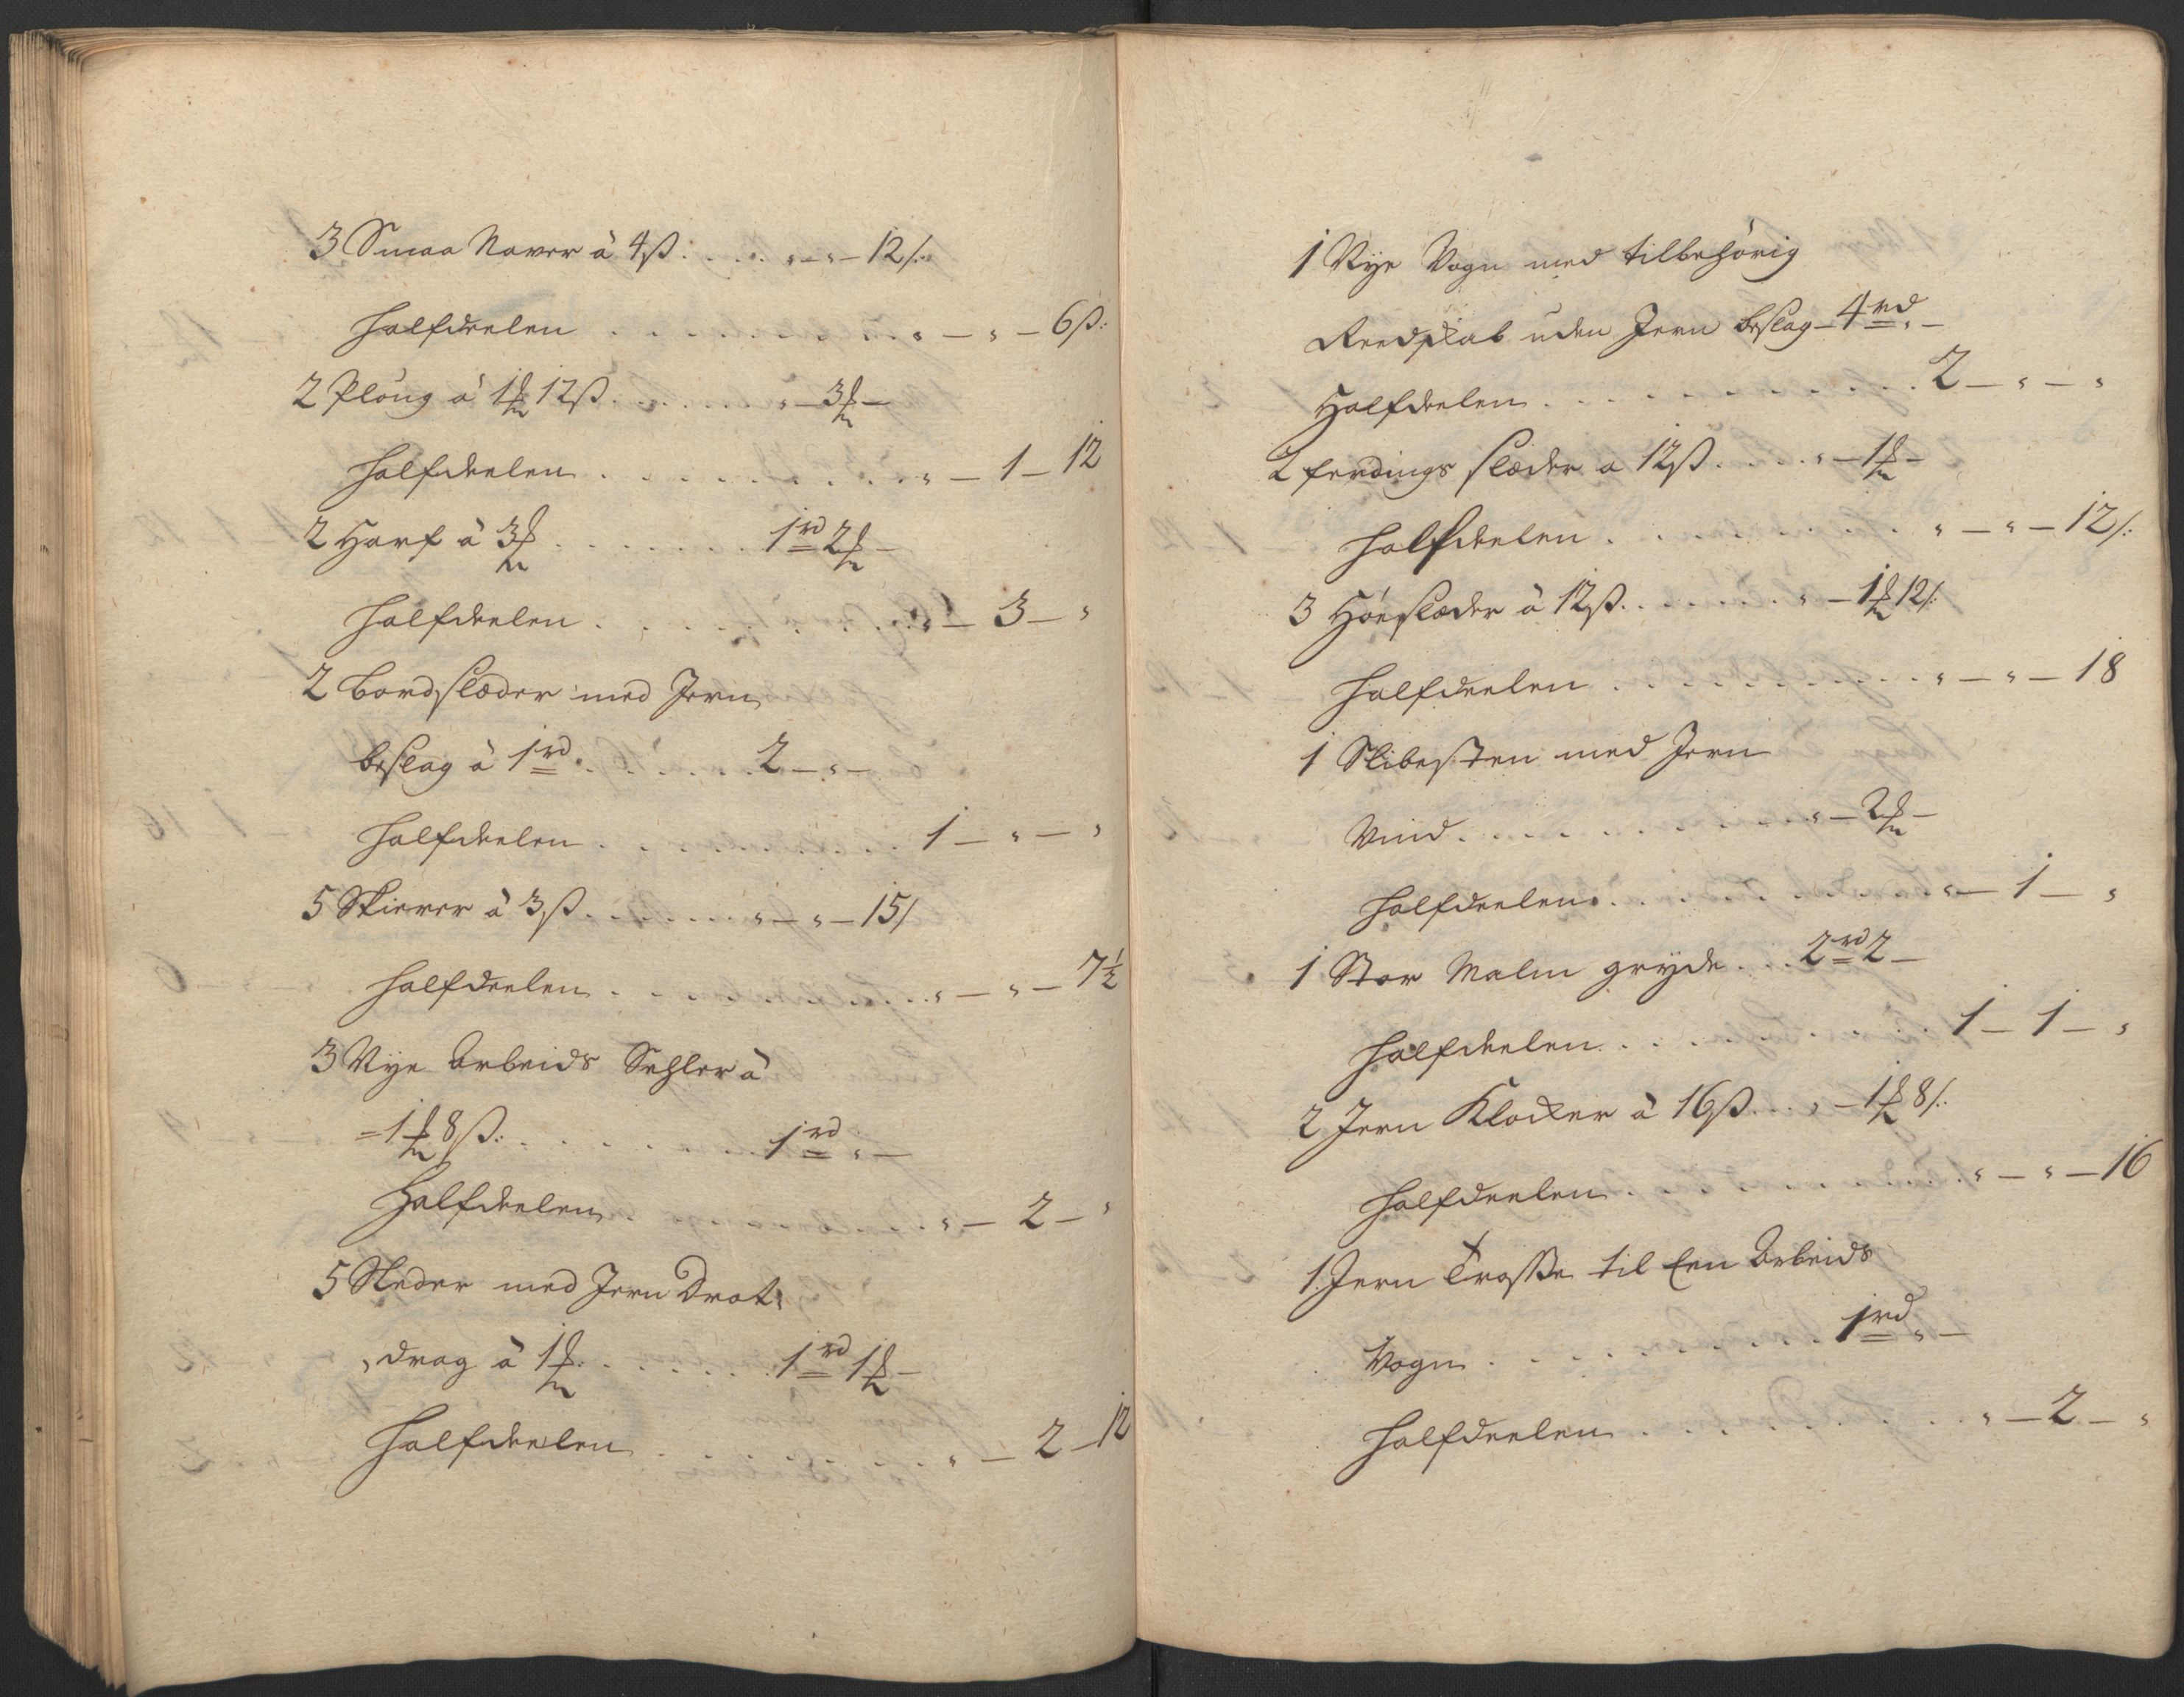 3 Smaa Naver à 4ß: . . . . „ — „ — 12ß.
Halfdeelen . . . . . . . . . „ — „ — 6ß:
2 Ploug à 1 ℔ 12ß . . . . . . „ — 3 ℔ —
Halfdeelen . . . . . . . . . „ — 1 — 12
2 Harf à 3 ℔ . . . . . . . 1 rd 2 ℔ —
Halfdeelen . . . . . . . . . „ — 3 — „
2 Bordslæder med Jern
beslag à 1 rd . . . . . . 2 — „ —
Halfdeelen . . . . . . . . . 1 — „ — „
5 Skierer à 3ß . . . . . . „ — „ — 15ß
Halfdeelen . . . . . . . . . „ — „ — 7½
3 Nye Arbeids Sehler à
= 1 ℔ 8ß: . . . . . . . . 1 rd „ —
Halfdeelen . . . . . . . . . „ — 2 — „
5 Sleder med Jern Drat
„ drag à 1 ℔ . . . . . . . 1 rd 1 ℔ —
Halfdeelen . . . . . . . . . „ — 2 — 12
1 Nye Vogn med tilbehörig
Reedskab uden Jern beslag — 4 rd „ —
Halfdeelen . . . . . . . . . 2 — „ — „
2 ferdings slæder a 12ß . . . . „ — 1 ℔ —
Halfdeelen . . . . . . . . . „ — „ — 12ß:
3 Höeslæder à 12ß . . . . . . „ — 1 ℔ 12ß:
Halfdeelen . . . . . . . . . „ — „ — 18
1 Slibesten med Jern
Vind . . . . . . . . . . . „ — 2 ℔ —
Halfdeelen . . . . . . . . . „ — 1 — „
1 Stor Malm gryde . . . 2 rd 2 —
Halfdeelen . . . . . . . . . 1 — 1 — „
2 Jern Klocker à 16ß . . . „ — 1 ℔ 8ß:
Halfdeelen . . . . . . . . . „ — „ — 16
1 Jern Trosse til Een Arbeids
Vogn . . . . . . . . . . . 1 rd „ —
Halfdeelen . . . . . . . . . „ — 2 — „